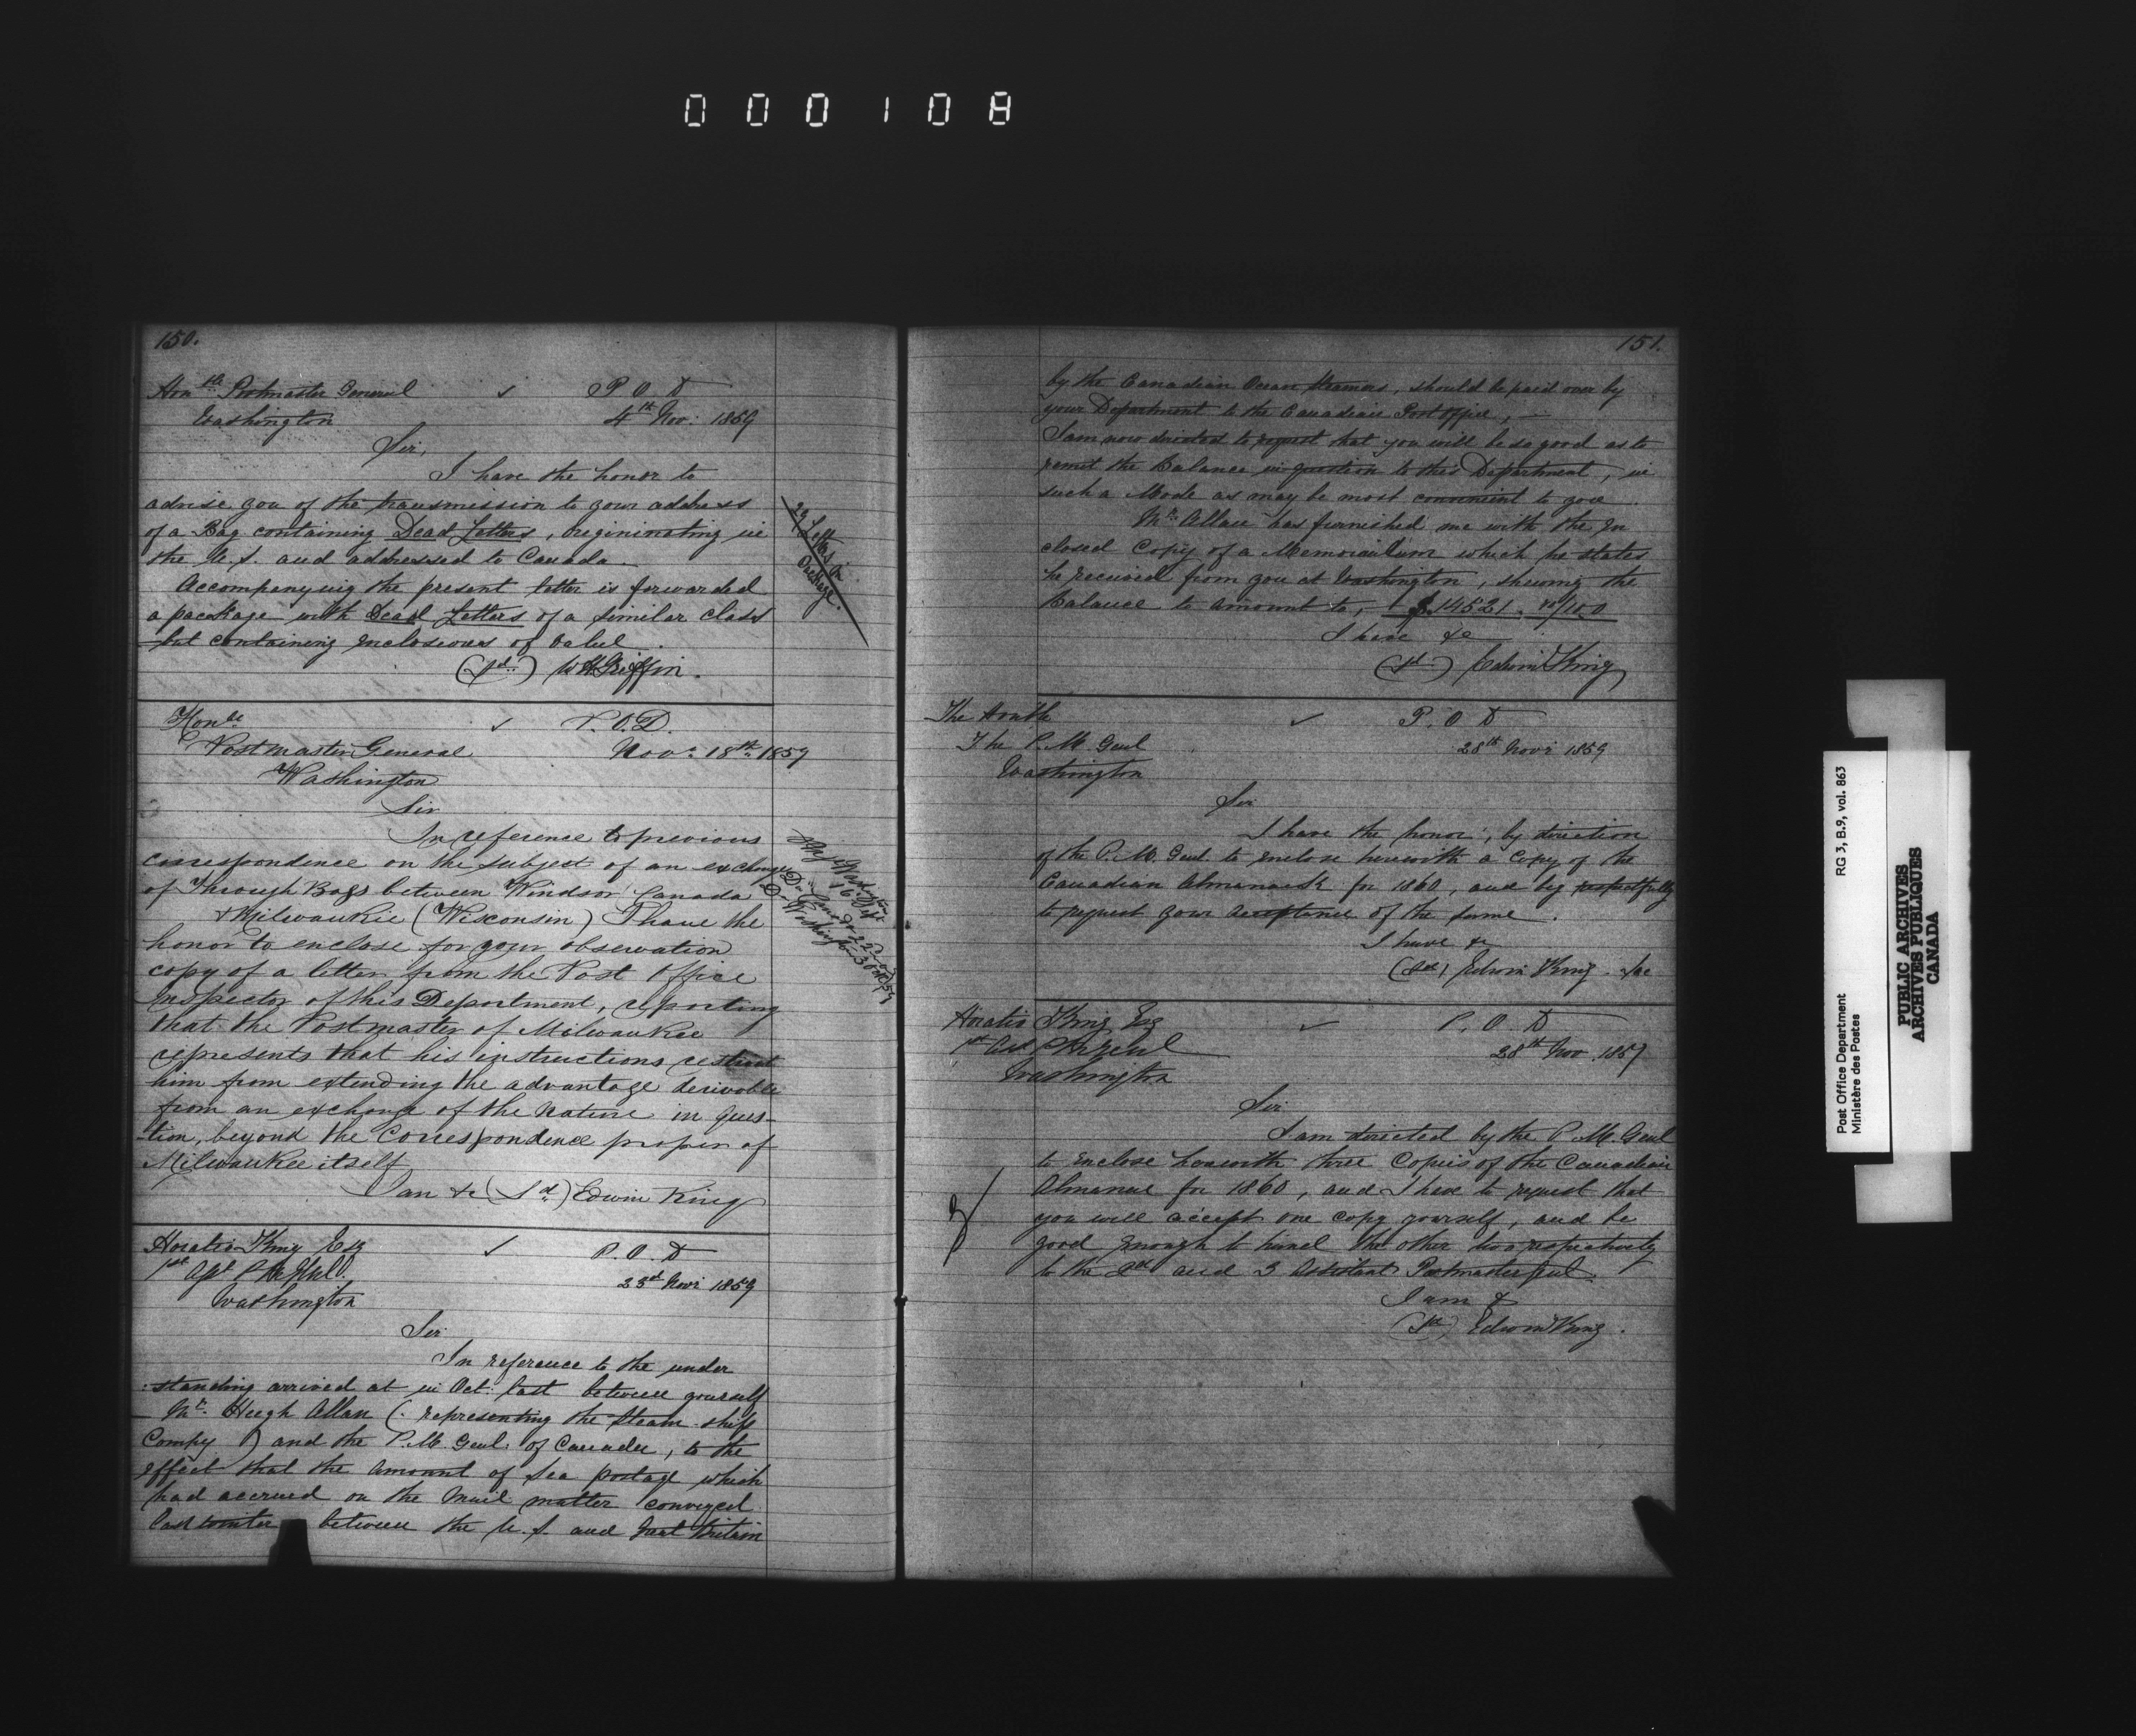 000108
150.
Honble Postmaster General P O D
Washington 4th Nov: 1859
Sir,
I have the honor to
advise you of the transmission to your address
of a Bag containing Dead Letters, origininating in
the U.S. and addressed to Canada.
Accompanying the present letter is forwarded
a package with Dead Letters of a similar class
but containing enclosures of value.
(sd.) W H Griffin.
29 Letters in
Package.
Honble ✓ P.O.D.
Postmaster General Novr 18th 1859
Washington
Sir
In reference to previous
correspondence on the subject of an exchange
of Through Bags between Windsor Canada
& Milwaukie (Wisconsin) I have the
honor to enclose for your observation
copy of a letter from the Post Office
Inspector of this Department, reporting
that the Postmaster of Milwaukee
represents that his instructions restrict
him from extending the advantage derivable
from an exchange of the nature in ques-
-tion, beyond the Correspondence proper of
Milwaukee itself
I am &c (Sd) Edwin King
Horatio King Esq ✓ P.O.D
1st Asst P M Genl.
Washington 23rd Novr 1859
Sir
In reference to the under
:standing arrived at in Oct: last between yourself
Mr. Hugh Allan (representing the Steam ship
Compy) and the P.M. Genl: of Canada, to the
effect that the amount of Sea postage which
had accrued on the mail matter conveyed
last winter between the U.S. and Great Britain
151.
by the Canadian Ocean Steamers, should be paid over by
your Department to the Canadian Post Office, —
I am now directed to request that you will be so good as to
remit the Balance in question to this Department, in
such a Mode as may be most convenient to you
Mr. Allan has furnished me with the In
closed Copy of a Memorandum which he states
he received from you at Washington, shewing the
Balance to amount to, $14521.
I have &c
(sd) Edwin King
The Honble ✓ P.O.D
The P.M. Genl 28th Novr 1859
Washington
Sir
I have the honor, by direction
of the P.M. Genl to enclose herewith a Copy of the
Canadian Almanack for 1860, and beg respectfully
to request your acceptance of the same.
I have &c
(sd) Edwin King
Horatio King Esq ✓ P.O.D
1st Asst P M Genl 28th Nov. 1859
Washington
Sir
I am directed by the P.M. Genl
to enclose herewith three Copies of the Canadian
Almanac for 1860, and I have to request that
you will accept one copy yourself, and be
good enough to hand the other two respectively
to the 2nd and 3 Assistant Postmaster Genl.
I am &
(sd) Edwin King.
Post Office Department RG 3, B.9, vol. 863
Ministère des Postes
PUBLIC ARCHIVES
ARCHIVES PUBLIQUES
CANADA